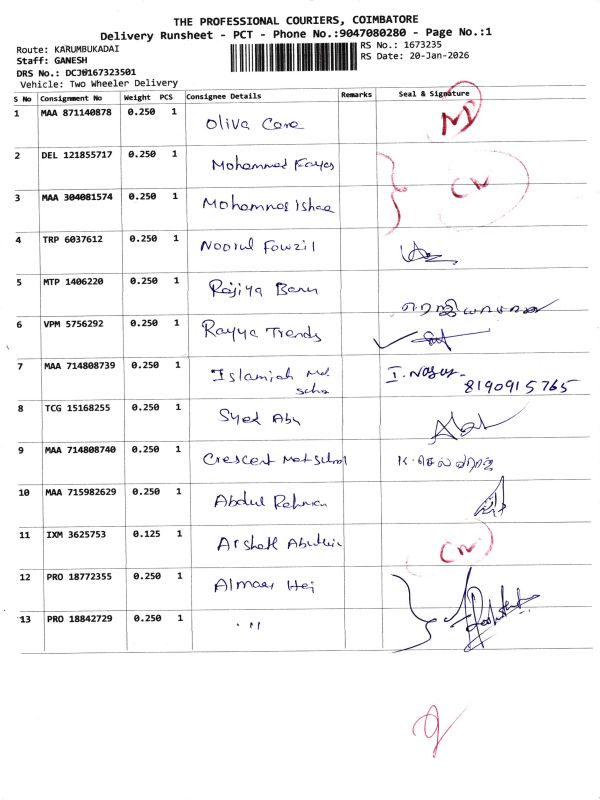 THE PROFESSIONAL COURIERS, COIMBATORE
Delivery Runsheet - PCT - Phone No.:9047080280 - Page No.:1
Route: KARUMBUKADAI
RS No.: 1673235
Staff: GANESH
RS Date: 20-Jan-2026
DRS No.: DCJ0167323501
Vehicle: Two Wheeler Delivery
S No Consignment No Weight PCS Consignee Details Remarks Seal & Signature
1 MAA 871140878 0.250 1 Oliva Care
2 DEL 121855717 0.250 1 Mohammed
3 MAA 304081574 0.250 1
4 TRP 6037612 0.250 1 Noorul Fowzil
5 MTP 1406220 0.250 1 Rajiya Banu
6 VPM 5756292 0.250 1 Rayya Trends
7 MAA 714808739 0.250 1 Islamiah Md. I.
8190915765
8 TCG 15168255 0.250 1 Syed Abu
9 MAA 714808740 0.250 1 Crescent Mat school
10 MAA 715982629 0.250 1 Abdul Rahman
11 IXM 3625753 0.125 1
12 PRO 18772355 0.250 1
13 PRO 18842729 0.250 1 "